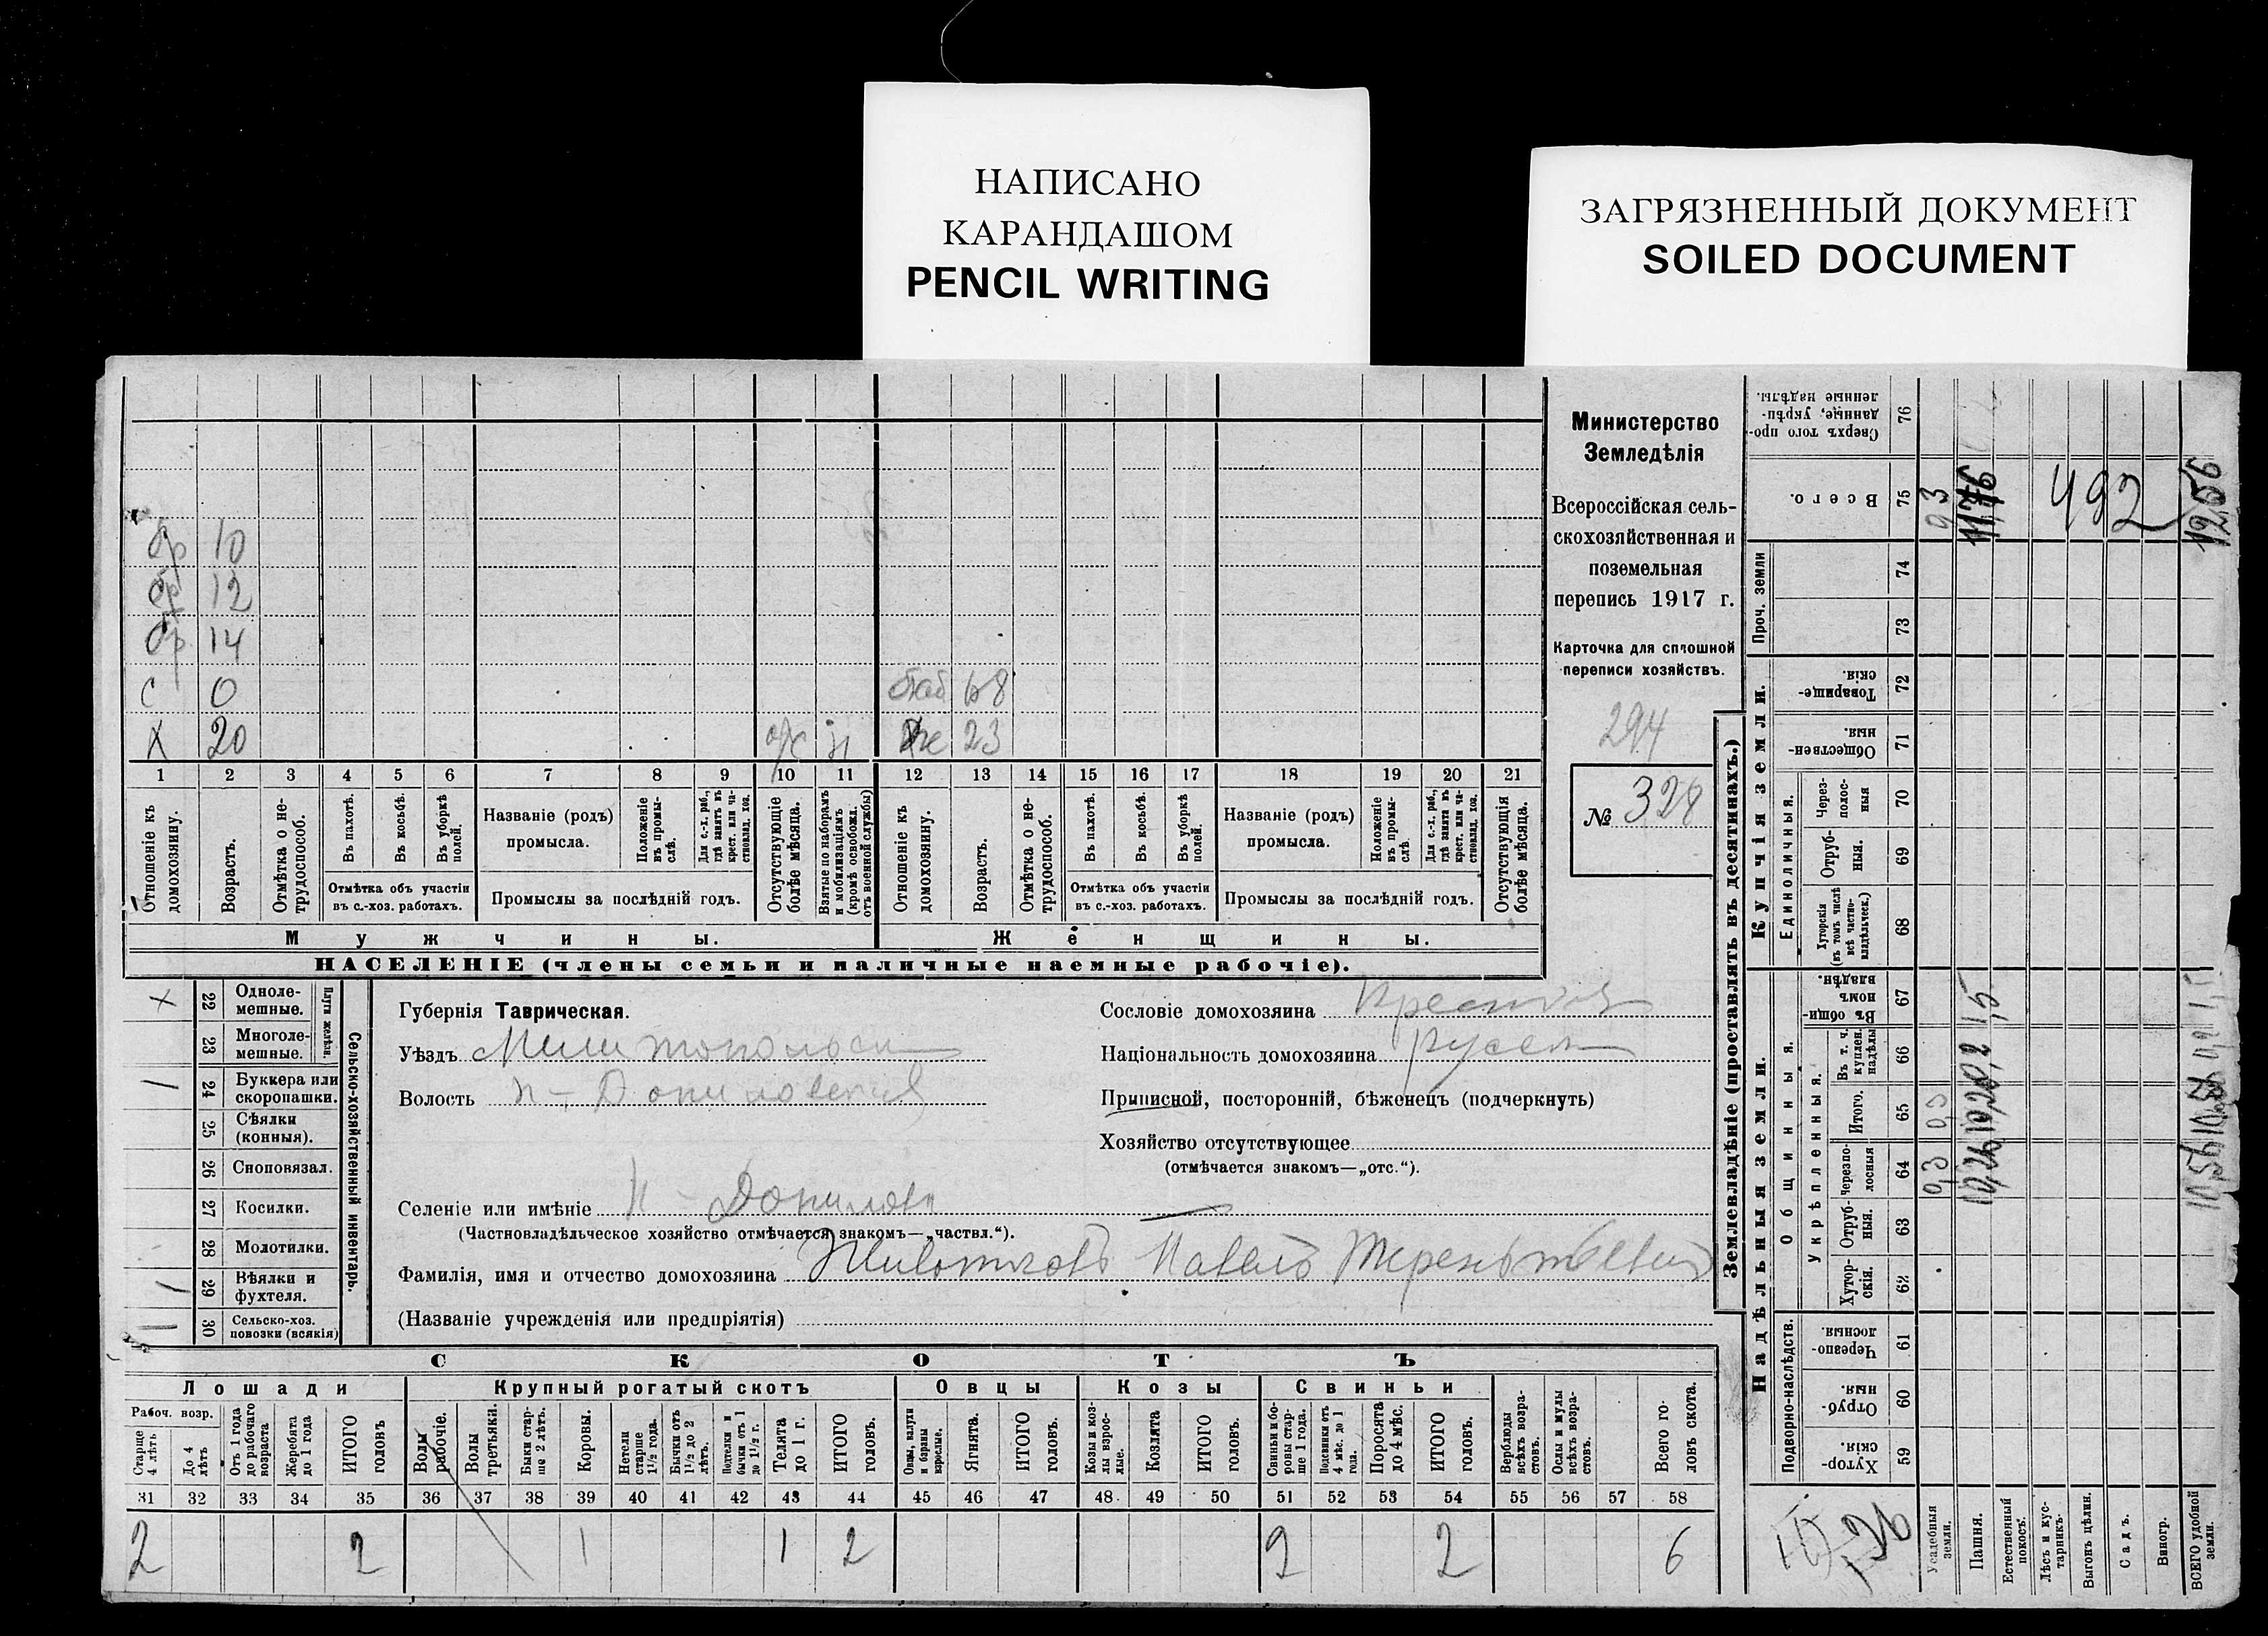 НАПИСАНО
КАРАНДАШОМ
PENCIL WRITING
ЗАГРЯЗНЕННЫЙ ДОКУМЕНТ
SOILED DOCUMENT
бр 10
бр 12
бр 14
с 0 баб 68
х 20 о/с н же 23
1 2 3 4 5 6 7 8 9 10 11 12 13 14 15 16 17 18 19 20 21
Отношеніе къ домохозяину.
Возрастъ.
Отмѣтка о нетрудоспособ.
Въ пахотѣ.
Въ косьбѣ.
Въ уборкѣ полей.
Отмѣтка объ участіи въ с.-хоз. работахъ.
Названіе (родъ) промысла.
Положеніе въ промыслѣ.
Для с.-х. раб., гдѣ занятъ въ крест. или частновлад. хоз.
Промыслы за послѣдній годъ.
Отсутствующіе болѣе мѣсяца.
Взятые по наборамъ и мобилизаціямъ (кромѣ освобожд. отъ военной службы)
Отношеніе къ домохозяину.
Возрастъ.
Отмѣтка о нетрудоспособ.
Въ пахотѣ.
Въ косьбѣ.
Въ уборкѣ полей.
Отмѣтка объ участіи въ с.-хоз. работахъ.
Названіе (родъ) промысла.
Положеніе въ промыслѣ.
Для с.-х. раб., гдѣ заняты въ крест. или частновлад. хоз.
Промыслы за послѣдній годъ.
Отсутствующія болѣе мѣсяца.
Мужчины. Женщины.
НАСЕЛЕНІЕ (члены семьи и наличные наемные рабочіе).
Министерство
Земледѣлія
Всероссійская сель-
скохозяйственная и
поземельная
перепись 1917 г.
Карточка для сплошной
переписи хозяйствъ.
294
№ 328
Сельско-хозяйственный инвентарь.
Плуги желѣзн.
х 22 Однолемешные.
23 Многолемешные.
1 24 Буккера или скоропашки.
25 Сѣялки (конныя).
26 Сноповязал.
27 Косилки.
28 Молотилки.
1 29 Вѣялки и фухтеля.
1 30 Сельско-хоз. повозки (всякія)
Губернія Таврическая.
Уѣздъ Мелитопольск
Волость н-Даниловская
Селеніе или имѣніе Н - Даниловка
(Частновладѣльческое хозяйство отмѣчается знакомъ—„частвл.“).
Сословіе домохозяина Крестьян
Національность домохозяина русск
Приписной, посторонній, бѣженецъ (подчеркнуть)
Хозяйство отсутствующее
(отмѣчается знакомъ—„отс.“).
Фамилія, имя и отчество домохозяина Животковъ Павелъ Терентьевич
(Названіе учрежденія или предпріятія)
СКОТЪ
Лошади Крупный рогатый скотъ Овцы Козы Свиньи
Рабоч. возр.
Старше 4 лѣтъ
До 4 лѣтъ
Отъ 1 года до рабочаго возраста
Жеребята до 1 года
ИТОГО головъ
Волы рабочіе.
Волы третьяки.
Быки старше 2 лѣтъ.
Коровы.
Нетели старше 1½ года.
Бычки отъ 1½ до 2 лѣтъ.
Подтелки и бычки отъ 1 до 1½ г.
Телята до 1 г.
ИТОГО головъ.
Овцы, валухи и бараны взрослые.
Ягнята.
ИТОГО головъ.
Козы и козлы взрослые.
Козлята
ИТОГО головъ.
Свиньи и боровы старше 1 года.
Подсвинки отъ 4 мѣс. до 1 года.
Поросята до 4 мѣс.
ИТОГО головъ.
Верблюды всѣхъ возрастовъ.
Ослы и мулы всѣхъ возрастовъ.
Всего головъ скота.
31 32 33 34 35 36 37 38 39 40 41 42 43 44 45 46 47 48 49 50 51 52 53 54 55 56 57 58
2 2 1 1 2 2 2 6
Землевладѣніе (проставлять въ десятинахъ.)
Надѣльныя земли. Купчія земли. Проч. земли
Подворно-наслѣдств.
Общинныя.
Укрѣпленныя.
Единоличныя.
Хуторскія 59
Отрубныя. 60
Черезполосныя. 61
Хуторскія. 62
Отрубныя. 63
Черезполосныя 64
Итого. 65
Въ т. ч. куплен. надѣлы 66
Въ общинномъ владѣн. 67
Хуторскія (въ томъ числѣ всѣ частновладѣльческ.) 68
Отрубныя. 69
Черезполосныя 70
Общественныя. 71
Товарищескія. 72
73
74
Всего. 75
Сверхъ того проданные, укрѣпленные надѣлы. 76
Усадебныя земли. 0,3 0,3 93
Пашня. 10,26 10,26 0,2 1,5 11,76
Естественный покосъ.
Лѣсъ и кустарникъ.
Выгонъ цѣлин. 492
Садъ.
Виногр.
ВСЕГО удобной земли. 10,56 1,5 12,56